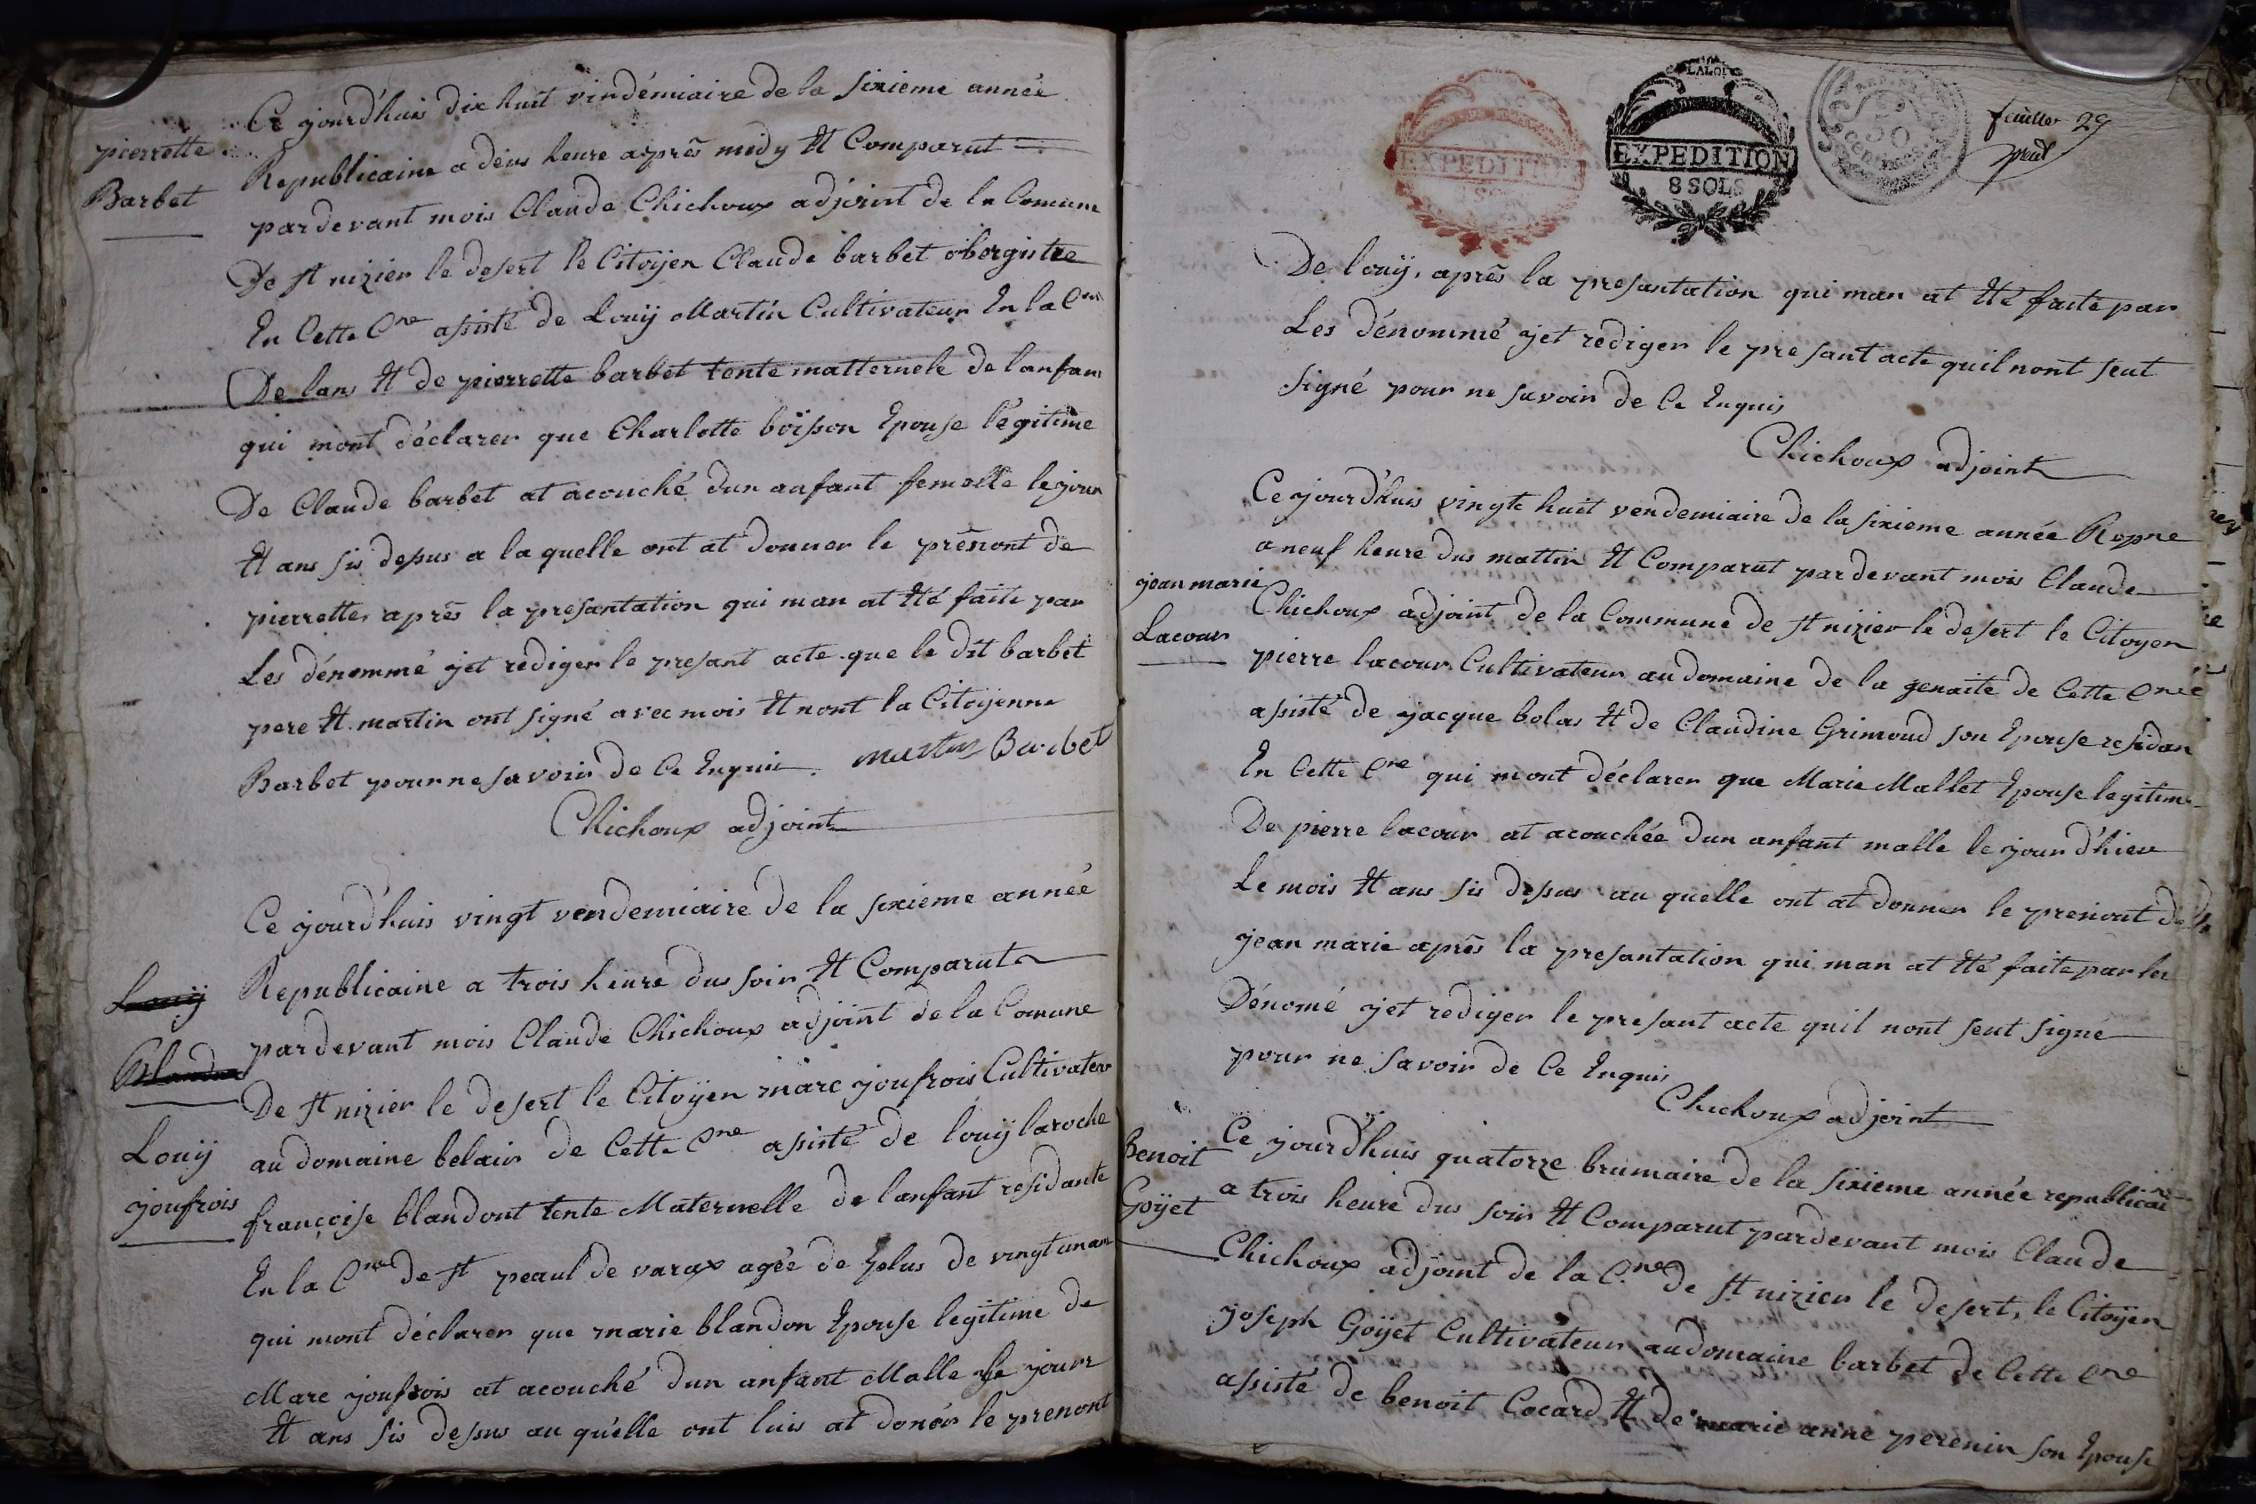 pierrette
Barbet
Ce jourd'huis dix huit vindémiaire de la sixieme année
Republicaine a deux heure après midy Et Comparut
pardevant mois Claude Chichoux adjoint de la Comune
De st nizier le desert le Citoÿen Claude barbet obergistre
En Cette Cne asisté de Louÿ Martin Cultivateur En la Cne
De lans Et de pierrette barbet tente matternele de lanfan
qui mont déclarer que Charlotte boisson Epouse légitime
De Claude barbet at acouché dun anfant femelle le jour
Et ans sis depus a la quelle ont at donner le prénont de
pierrette après la presantation qui man at Eté faite par
Les dénommé jet rediger le presant acte que le dit barbet
pere Et martin ont signé avec mois Et nont la Citoÿenne
Barbet pour ne savoir de Ce Enquis. martin Barbet
Chichoux adjoint
Louÿ
Blandon
Louÿ
joufrois
Ce jourd'huis vingt vendemiaire de la sixieme année
Republicaine a trois heure dus soir Et Comparut
pardevant mois Claude Chichoux adjoint de la Comune
De st nizier le desert le Citoÿen marc joufrois Cultivateur
au domaine belair de Cette Cne asisté de louÿ laroche
françoise blandont tente Maternelle de lanfant residante
En la Cne de st peaul de varax agée de plus de vingt un an
qui mont déclarer que marie blandon Epouse legitime de
Marc joufrois at acouché dun anfant Malle le jour
Et ans sis depus au quelle ont luis at donér le prenont
LALOI
EXPEDITION
EXPEDITION
8 SOLS
50
CENTIMES
feuillet 29
De louÿ, après la presantation qui man at Eté faite par
Les dénommé jet rediger le presant acte quil nont seut
signé pour ne savoir de Ce Enquis
Chichoux adjoint
jean marie
Lacour
Ce jourd'huis vingt huit vendemiaire de la sixieme année Repne
a neuf heure dus mattin Et Comparut pardevant mois Claude
Chichoux adjoint de la Commune de st nizier le desert le Citoyen
pierre lacour Cultivateur au domaine de la genaite de Cette Cne
asisté de jacque bolas Et de Claudine Grimoud son Epouse residan
En Cette Cne qui mont déclarer que Marie Mallet Epouse legitime
De pierre lacour at acouchée dun anfant malle le jour d'hier
Le mois Et ans sis depus au quelle ont at donner le prenont de
jean marie après la presantation qui man at Eté faite par les
Dénomé jet rediger le presant acte quil nont seut signé
pour ne savoir de Ce Enquis
Chichoux adjoint
Benoit
Goÿet
Ce jourd'huis quatorze brumaire de la sixieme année republicaine
a trois heure dus soir Et Comparut pardevant mois Claude
Chichoux adjoint de la Cne de st nizier le desert, le Citoÿen
joseph Goÿet Cultivateur au domaine barbet de Cette Cne
asisté de benoit Cocard Et de marie anne perenin son Epouse